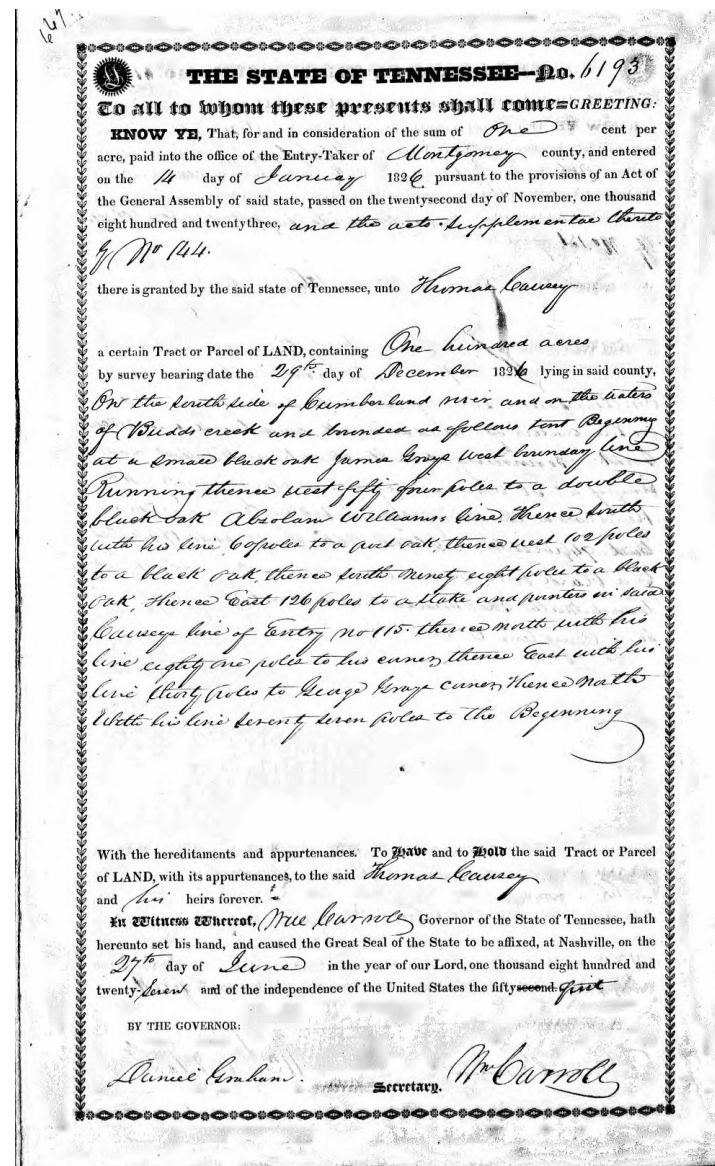 667
THE STATE OF TENNESSEE—No. 6193
To all to whom these presents shall come=GREETING:
KNOW YE, That, for and in consideration of the sum of One cent per
acre, paid into the office of the Entry-Taker of Montgomey county, and entered
on the 14 day of January 1826 pursuant to the provisions of an Act of
the General Assembly of said state, passed on the twentysecond day of November, one thousand
eight hundred and twentythree, and the acts supplementae thereto
No 144.
there is granted by the said state of Tennessee, unto Thomas Causey
a certain Tract or Parcel of LAND, containing One hundred acres
by survey bearing date the 29th day of December 1826 lying in said county,
On the south side of Cumberland river and on the waters
of Budds creek and bounded as follows Beginning
at a small black oak James Grays west boundary line
Running thence west fifty four poles to a double
black oak Absolam Williams's line. Thence South
with his line 60 poles to a post oak, thence west 102 poles
to a black oak, thence south ninety eight poles to a black
oak, thence East 126 poles to a stake and pointers in said
Causeys line of Entry no 115. thence north with his
line eighty one poles to his corner, thence East with his
line thirty poles to George Grays corner, Thence North
With his line seventy seven poles to the Beginning
With the hereditaments and appurtenances. To Have and to Hold the said Tract or Parcel
of LAND, with its appurtenances, to the said Thomas Causey
and his heirs forever.
In Witness Whereof, Wm Carroll Governor of the State of Tennessee, hath
hereunto set his hand, and caused the Great Seal of the State to be affixed, at Nashville, on the
27th day of June in the year of our Lord, one thousand eight hundred and
twenty-seven and of the independence of the United States the fiftysecond first
BY THE GOVERNOR:
Wm Carroll
Daniel Graham. Secretary.